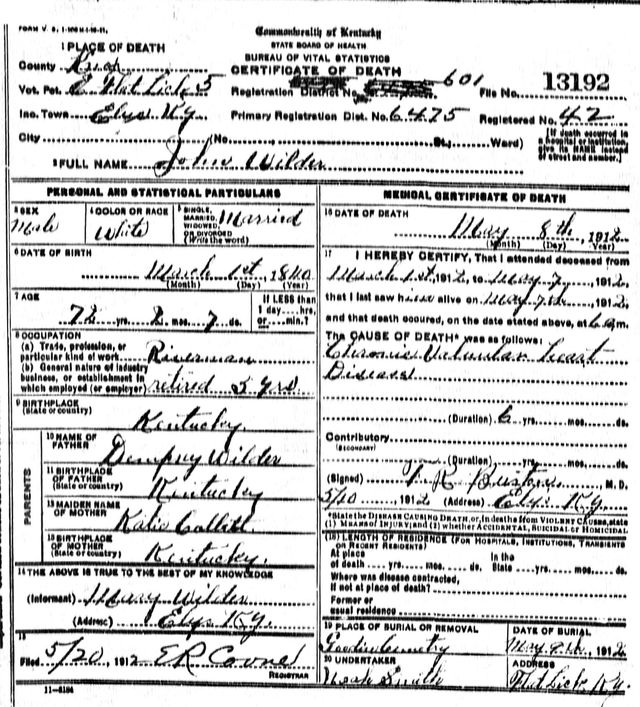 FORM V. S.
Commonwealth of Kentucky
STATE BOARD OF HEALTH
BUREAU OF VITAL STATISTICS
CERTIFICATE OF DEATH
1 PLACE OF DEATH
County Knox
Vot. Pct. E Flat Lick 5
Inc. Town Elys Ky
City (No. St.; Ward)
Registration District No. 601
Primary Registration Dist. No. 6475
File No. 13192
Registered No. 42
[If death occurred in
a hospital or institution,
give its NAME instead
of street and number.]
2 FULL NAME John Wilder
PERSONAL AND STATISTICAL PARTICULARS
3 SEX
Male
4 COLOR OR RACE
White
5 SINGLE, MARRIED, WIDOWED, OR DIVORCED (Write the word)
Married
6 DATE OF BIRTH
March 1st 1840
(Month) (Day) (Year)
7 AGE
72 yrs. 2 mos. 7 ds.
If LESS than
1 day hrs.
or min.?
8 OCCUPATION
(a) Trade, profession, or
particular kind of work Riverman
(b) General nature of industry
business, or establishment in
which employed (or employer) retired 5 yrs
9 BIRTHPLACE
(State or country)
Kentucky
PARENTS
10 NAME OF
FATHER
Dempsey Wilder
11 BIRTHPLACE
OF FATHER
(State or country)
Kentucky
12 MAIDEN NAME
OF MOTHER
Katie
13 BIRTHPLACE
OF MOTHER
(State or country)
Kentucky.
14 THE ABOVE IS TRUE TO THE BEST OF MY KNOWLEDGE
(Informant) Mary Wilder
(Address) Elys Ky.
15
Filed 5/20, 1912 E R
REGISTRAR
11-3184
MEDICAL CERTIFICATE OF DEATH
16 DATE OF DEATH
May 8th, 1912
(Month) (Day) (Year)
17 I HEREBY CERTIFY, That I attended deceased from
March 1st, 1912, to May 7, 1912
that I last saw him alive on May 7th, 1912,
and that death occurred, on the date stated above, at m.
The CAUSE OF DEATH* was as follows:
Chronic Valvular heart
Disease
(Duration) 6 yrs. mos. ds.
Contributory
(SECONDARY)
(Duration) yrs. mos. ds.
(Signed) M. D.
5/10 1912 (Address) Elys Ky.
*State the DISEASE CAUSING DEATH, or, in deaths from VIOLENT CAUSES, state
(1) MEANS OF INJURY; and (2) whether ACCIDENTAL, SUICIDAL or HOMICIDAL.
(18) LENGTH OF RESIDENCE (FOR HOSPITALS, INSTITUTIONS, TRANSIENTS
OR RECENT RESIDENTS)
At place
of death yrs. mos. ds.
In the
State yrs. mos. ds.
Where was disease contracted,
if not at place of death?
Former or
usual residence
19 PLACE OF BURIAL OR REMOVAL
Goodin Cemetry
DATE OF BURIAL
May 9th, 1912
20 UNDERTAKER
Noah Smith
ADDRESS
Flat Lick Ky.